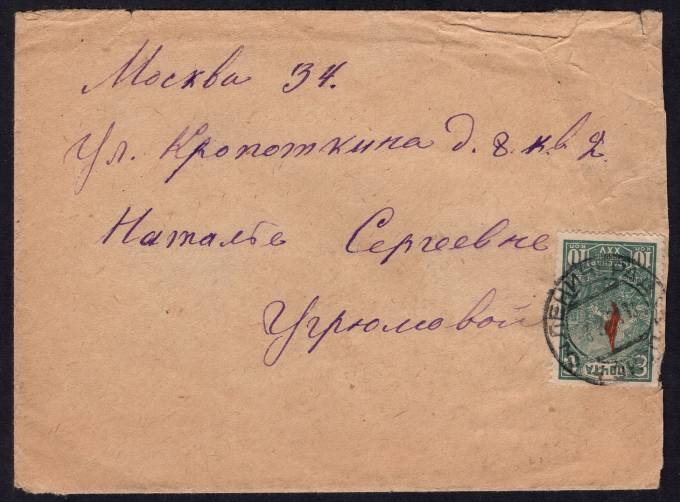 Москва 34.
Ул. Кропоткина д. 8. кв. 2
Наталье Сергеевне
Угрюмовой
ЛЕНИНГРАД
ПОЧТА
10 XXV 10
КОП. КОП.